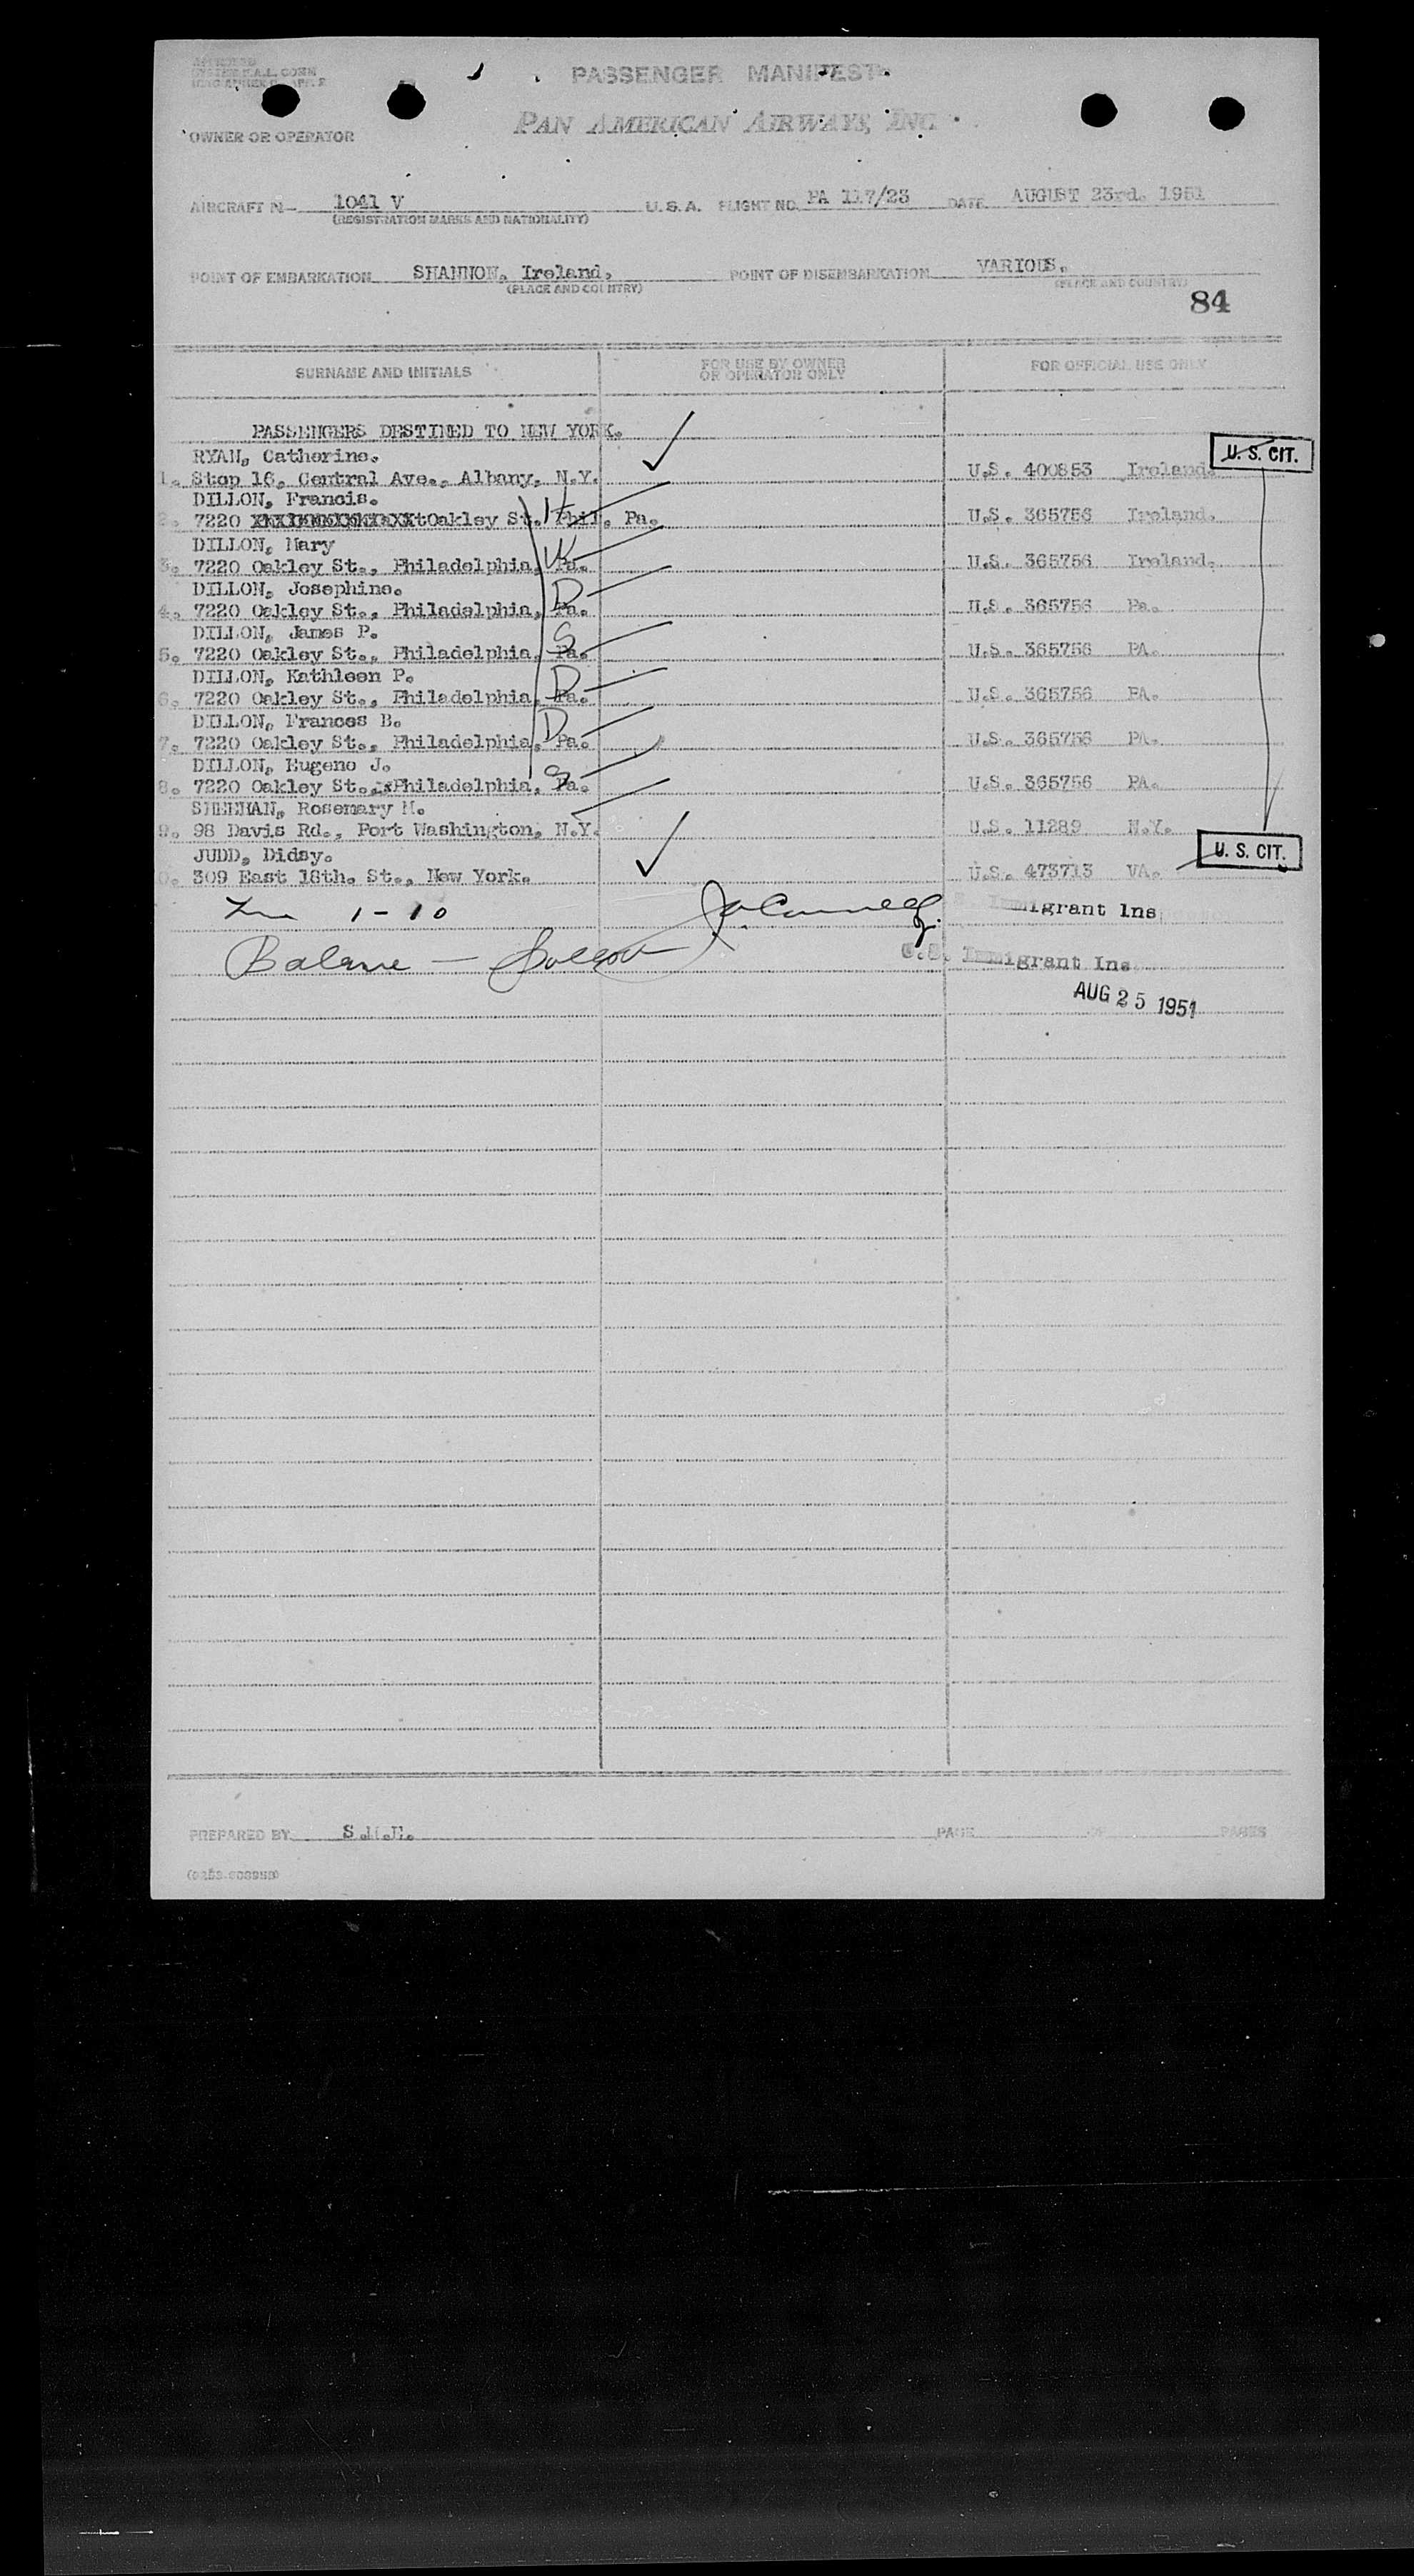 PASSENGER MANIFEST
PAN AMERICAN AIRWAYS, INC.
OWNER OR OPERATOR
AIRCRAFT N- 1041 V U.S.A. FLIGHT NO. PA 117/23 DATE AUGUST 23rd. 1951
(REGISTRATION MARKS AND NATIONALITY)
POINT OF EMBARKATION SHANNON, Ireland. POINT OF DISEMBARKATION VARIOUS.
(PLACE AND COUNTRY) (PLACE AND COUNTRY)
84
SURNAME AND INITIALS FOR USE BY OWNER OR OPERATOR ONLY FOR OFFICIAL USE ONLY
PASSENGERS DESTINED TO NEW YORK.
RYAN, Catherine. U. S. CIT.
1. Stop 16, Central Ave., Albany, N.Y. U.S. 400853 Ireland.
DILLON, Francis. H
2. 7220 Oakley St. Phil. Pa. U.S. 365756 Ireland.
DILLON, Mary W
3. 7220 Oakley St., Philadelphia, Pa. U.S. 365756 Ireland.
DILLON, Josephine. D
4. 7220 Oakley St., Philadelphia, Pa. U.S. 365756 Pa.
DILLON, James P. S
5. 7220 Oakley St., Philadelphia, Pa. U.S. 365756 PA.
DILLON, Kathleen P. D
6. 7220 Oakley St., Philadelphia, Pa. U.S. 365756 PA.
DILLON, Frances B. D
7. 7220 Oakley St., Philadelphia, Pa. U.S. 365756 PA.
DILLON, Eugene J. S
8. 7220 Oakley St., Philadelphia, Pa. U.S. 365756 PA.
SHEEHAN, Rosemary M.
9. 98 Davis Rd., Port Washington, N.Y. U.S. 11289 N.Y.
JUDD, Didsy. U. S. CIT.
0. 309 East 18th. St., New York. U.S. 473713 VA.
1-10 Immigrant Ins
Balance - U.S. Immigrant Ins
AUG 25 1951
PREPARED BY PAGE OF PAGES